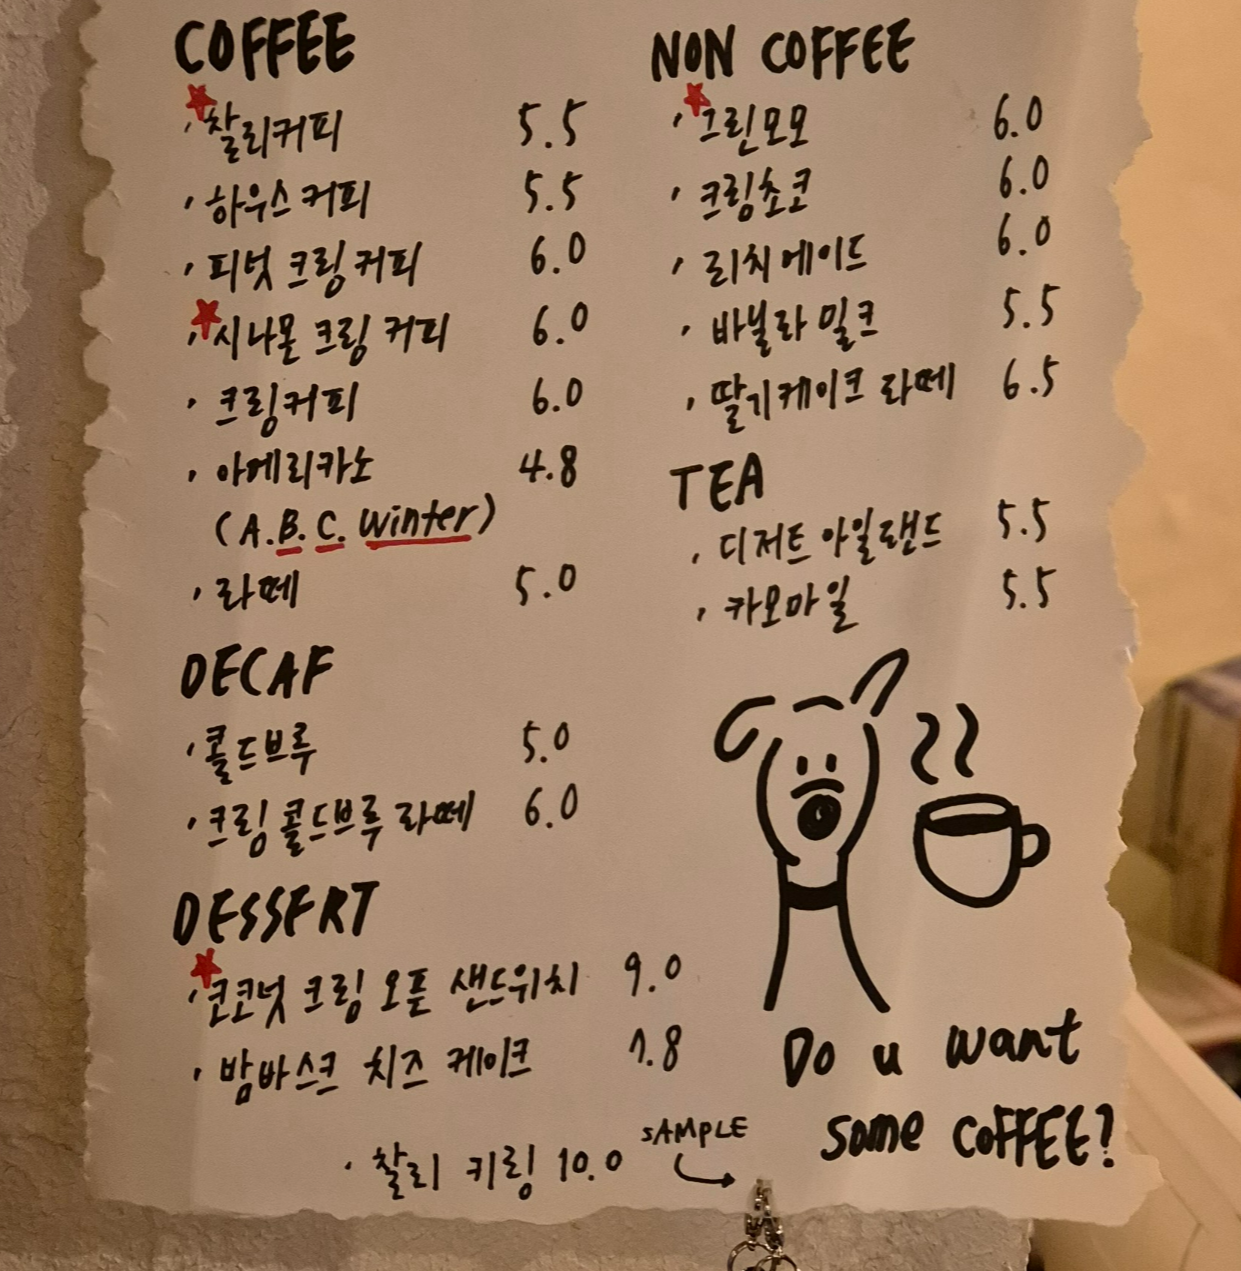 COFFEE
· 찰리커피 5.5
· 하우스커피 5.5
· 피넛 크림 커피 6.0
· 시나몬 크림 커피 6.0
· 크림커피 6.0
· 아메리카노 4.8
(A.B.C. Winter)
· 라떼 5.0
DECAF
· 콜드브루 5.0
· 크림 콜드브루 라떼 6.0
DESSERT
· 코코넛 크림 오픈 샌드위치 9.0
· 밤바스크 치즈 케이크 7.8
· 찰리 키링 10.0
SAMPLE
NON COFFEE
· 그린모모 6.0
· 크림초코 6.0
· 리치에이드 6.0
· 바닐라 밀크 5.5
· 딸기케이크 라떼 6.5
TEA
· 디저트 아일랜드 5.5
· 캬모마일 5.5
Do u want
some COFFEE?